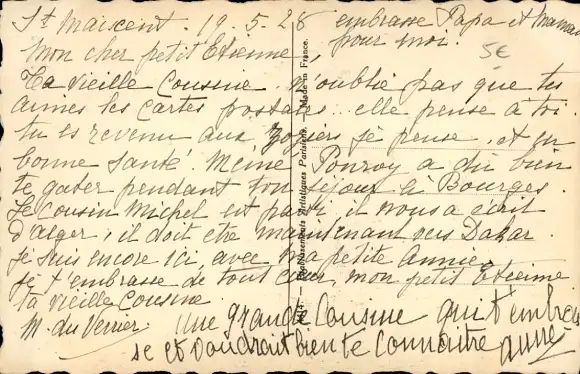 St Maixent. 19.5.28
embrasse Papa et Maman
pour moi.
5€
Mon cher petit Etienne,
Ta vieille Cousine n'oublie pas que tu
aimes les cartes postales... elle pense à toi.
tu es revenu aux je pense, et en
bonne santé. Mémé Pouroy a dû bien
te gater pendant ton séjour à Bourges.
Le Cousin Michel est parti, il nous a écrit
d'alger, il doit être maintenant vers Dakar.
je suis encore ici, avec ma petite Annie,
je t'embrasse de tout cœur mon petit Etienne
ta vieille Cousine
M. du Verrier.
une grande Cousine qui t'embrasse
se et voudrait bien te connaitre
Etablissements Artistiques Parisiens. Made in France.